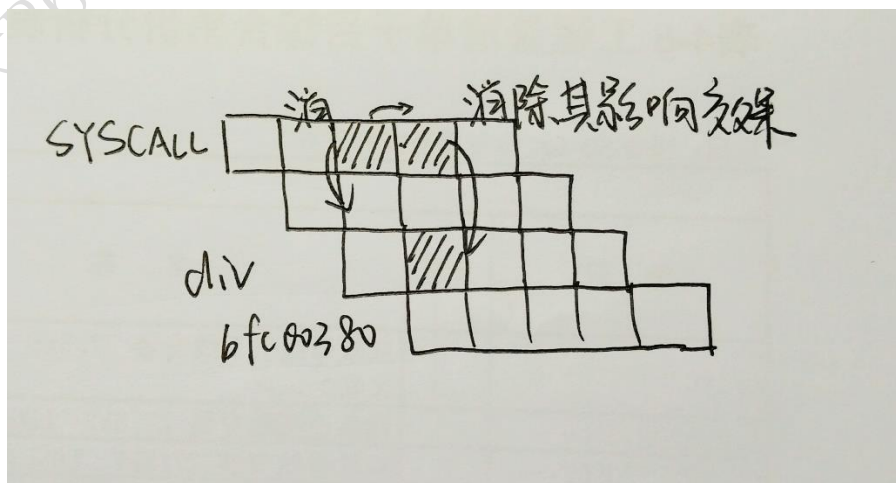 消 消除其影响效果
SYSCALL
div
bfc00380